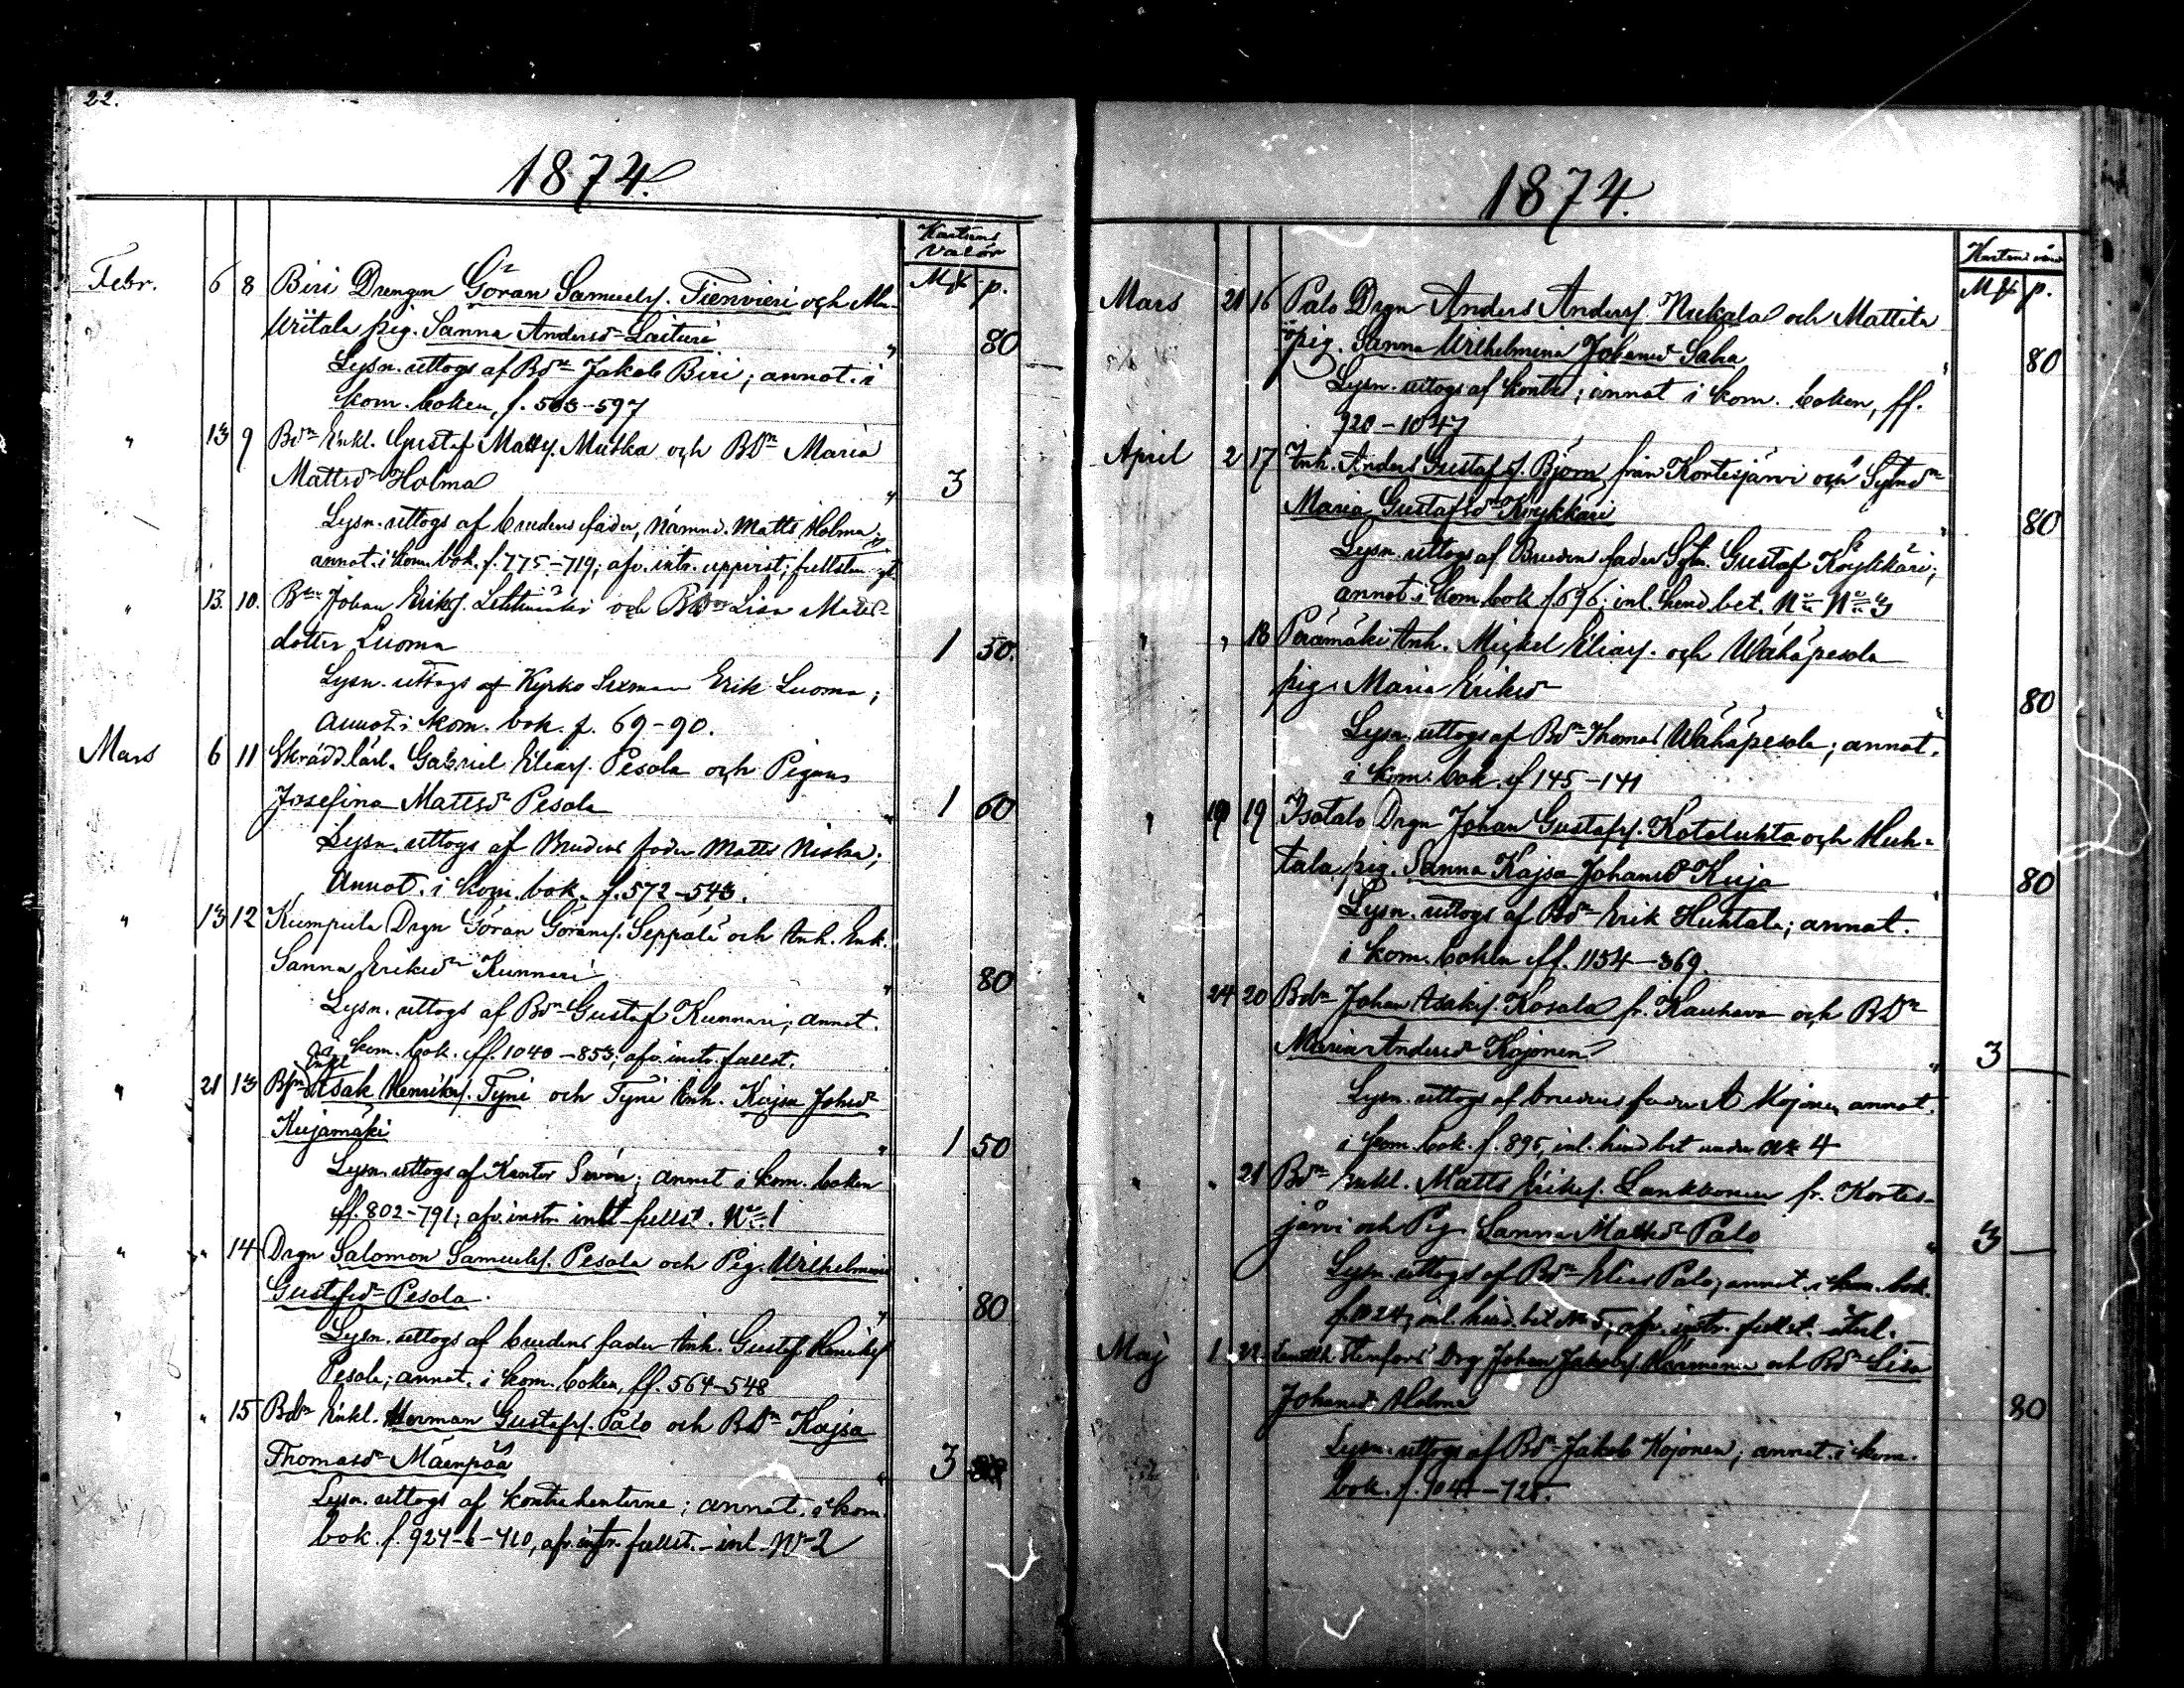 22.
1874.
Kartans
Valör
Mk p.
Febr. 6 8 Biri Drengen Göran Samuelsf. Tienvieri och
Wiitala pig. Sanna Andersdr Laituri " 80
Lysn. uttogs af Bdn Jakob Biri; annot. i
kom. boken, f. 503-597
" 13 9 Bdn Enkl. Gustaf Mattsf. Mutka och BDn Maria
Mattsdr Holma " 3
Lysn. uttogs af brudens fader, Nämnd. Matts Holma;
annot. i kom. bok. f. 775-719; afv. intr. uppvist; fullst.
" 13. 10. Bdn Johan Eriksf. och BDn Lisa Matts-
dotter Luoma 1 50.
Lysn. uttogs af Kyrko Sexman Erik Luoma;
annot. i kom. bok. f. 69-90.
Mars 6 11 Skrädd.lärl. Gabriel Eliasf. Pesola och Pigan
Josefina Mattsdr Pesola " 1 60
Lysn. uttogs af Brudens fader Matts Niska;
Annot. i kom. bok. f. 572-543.
" 13 12 Kumpula Drgn Göran Göransf. Seppälä och Inh. Enk.
Sanna Eriksdr Kunnari " 80
Lysn. uttogs af Bdn Gustaf Kunnari; annot.
i kom. bok. ff. 1040-853; afv. instr. fullst.
" 21 13 Enkl Isak Henriksf. Tyni och Tyni Inh. Kajsa Johsdr
Kujamäki " 1 50
Lysn. uttogs af Kantor; annot i kom. boken
ff. 802-791; afv. instr. inl. fullst. No 1
" " 14 Drgn Salomon Samuelsf. Pesola och Pig. Wilhelmina
Gustafsdr Pesola. " 80
Lysn. uttogs af brudens fader Inh. Gustaf Henriksf
Pesola; annot. i kom. boken, ff. 564-548
" " 15 Bdn Enkl. Herman Gustafsf. Palo och BDn Kajsa
Thomasdr Mäenpää " 3
Lysn. uttogs af kontrahenterne; annot. i kom.
bok. f. 924-b-710, afv. instr. fullst. - inl. No 2
1874.
Mk p.
Mars 21 16 Palo Drgn Anders Andersf. Nukala och Mattila
pig. Sanna Wilhelmina Johansdr Saha " 80
Lysn. uttogs af kontr; annot i kom. boken, ff.
920-1047
April 2 17 Inh. Anders Gustafsf. Björn från Kortesjärvi och Sytndr
Maria Gustafsdr Köykkäri " 80
Lysn. uttogs af Brudens fader Sytn. Gustaf Köykkäri;
annot. i kom. bok f 696; inl. hind. bet. No 3
" " 18 Perämäki Inh. Mickel Eliasf. och Wähäpesola
pig. Maria Eriksdr " 80
Lysn. uttogs af Bdn Thomas Wähäpesola; annot.
i kom. bok. f 145-141
" 19 19 Isotalo Drgn Johan Gustafsf. Kotoluhta och Huh-
tala pig. Sanna Kajsa Johansdr Kuja " 80
Lysn. uttogs af Bdn Erik Huhtala; annot.
i kom. boken ff. 1154-369.
" 24 20 Bdn Johan Isaksf. Kosala fr. Kauhava och BDn
Maria Andersdr Kojonen " 3
Lysn. uttogs af brudens fader A Kojonen annot.
i kom. bok. f. 895, inl. hind bet under No 4
" " 21 Bdn Enkl. Matts Eriksf. Lankkonen fr. Kortes-
järvi och Pig. Sanna Mattsdr Palo " 3
Lysn. uttogs af Bdn Elias Palo; annot. i kom. bok.
f. 1024; inl. hind. bet No 5; afv. instr. fullst.
Maj 1 22 Drg Johan Jakobsf. och Bdn Lisa
Johansdr Holma 80
Lysn. uttogs af Bdn Jakob Kojonen; annot. i kom.
bok. f.